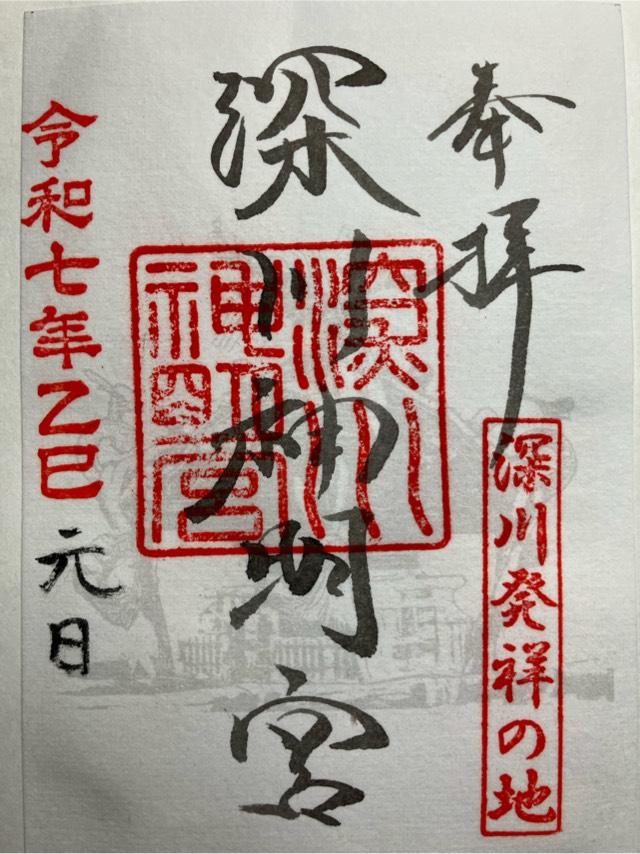 奉拝
深川発祥の地
深川神明宮
深川神明宮
令和七年乙巳
元日